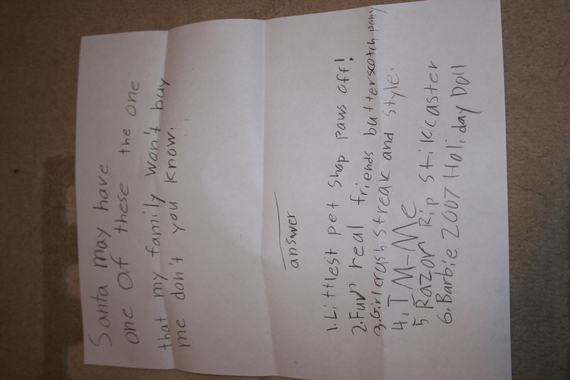 Santa may have
one of these the one
that my family won't buy
me don't you know.
answer
1. Littlest pet shop paws off!
2. Furr real friends butterscotch pony
3. Girl crush streak and style.
4. T M-Me
5. Razor Rip stikcaster
6. Barbie 2007 Holiday Doll